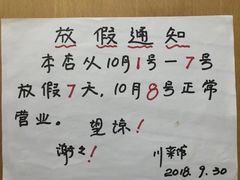 放假通知
本店从10月1号一7号
放假7天,10月8号正常
营业。 望谅!
谢谢! 川菜馆
2018.9.30